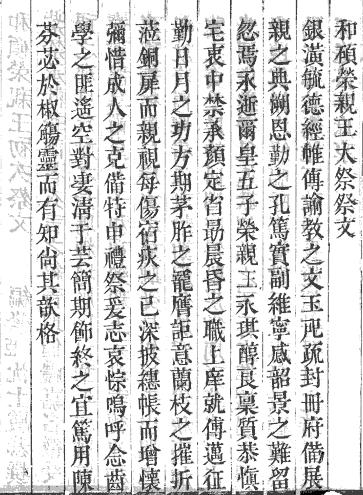 和碩榮親王大祭祭文
銀潢毓德經帷傳諭教之文玉冊疏封冊府備展
親之典朔恩勤之孔篤實副維寧感韶景之難留
忽焉永逝爾皇五子榮親王永琪醇良稟質恭慎
宅衷中禁承顏定省勗晨昏之職上庠就傅邁征
勤日月之功方期茅胙之寵膺詎意蘭枝之摧折
蒞銅扉而親視每傷宿疾之已深披繐帳而增懷
彌惜成人之克備特申禮祭爰志哀悰嗚呼念齒
學之匪遙空對淒清于芸簡期飾終之宜篤用陳
芬苾於椒觴靈而有知尚其歆格